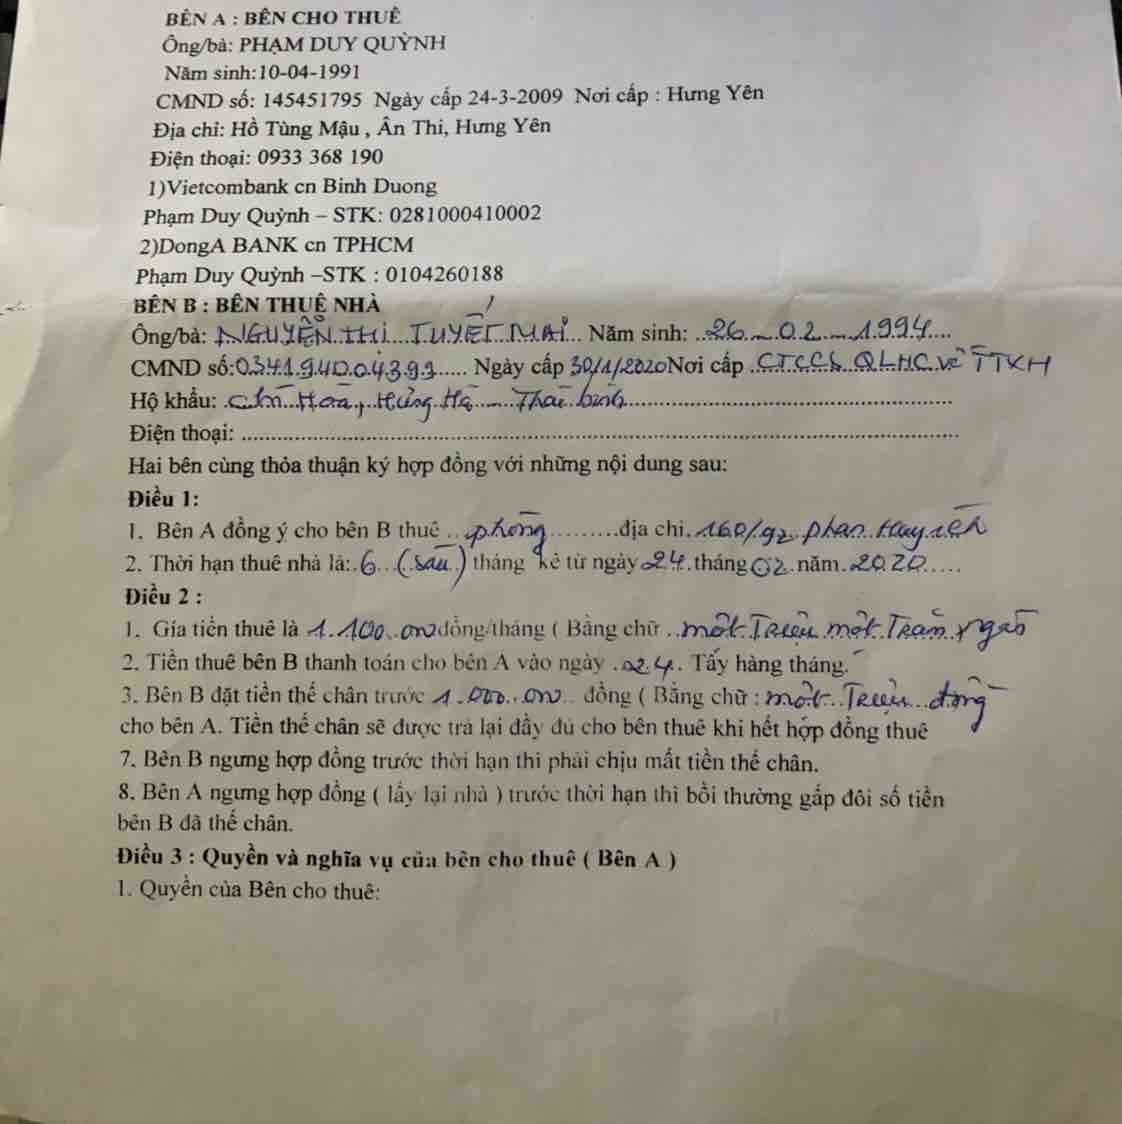 BÊN A : BÊN CHO THUÊ
Ông/bà: PHẠM DUY QUỲNH
Năm sinh:10-04-1991
CMND số: 145451795 Ngày cấp 24-3-2009 Nơi cấp : Hưng Yên
Địa chỉ: Hồ Tùng Mậu , Ân Thi, Hưng Yên
Điện thoại: 0933 368 190
1)Vietcombank cn Binh Duong
Phạm Duy Quỳnh – STK: 0281000410002
2)DongA BANK cn TPHCM
Phạm Duy Quỳnh –STK : 0104260188
BÊN B : BÊN THUÊ NHÀ
Ông/bà: NGUYỄN THỊ TUYẾT MAI Năm sinh: 26 - 02 - 1994
CMND số: Ngày cấp 30/1/2020 Nơi cấp CTCCS QLHC về TTXH
Hộ khẩu: Hoà, Hưng Hà - Thái bình
Điện thoại:
Hai bên cùng thỏa thuận ký hợp đồng với những nội dung sau:
Điều 1:
1. Bên A đồng ý cho bên B thuê phòng địa chỉ. 160/92 phan Huy ích
2. Thời hạn thuê nhà là: 6 (sáu) tháng kể từ ngày 24 tháng 02 năm 2020
Điều 2 :
1. Gía tiền thuê là 1.100.000 đồng/tháng ( Bằng chữ một Triệu một Trăm
2. Tiền thuê bên B thanh toán cho bên A vào ngày 24. Tây hàng tháng.
3. Bên B đặt tiền thế chân trước 1.000.000 đồng ( Bằng chữ : một Triệu đồng
cho bên A. Tiền thế chân sẽ được trả lại đầy đủ cho bên thuê khi hết hợp đồng thuê
7. Bên B ngưng hợp đồng trước thời hạn thì phải chịu mất tiền thế chân.
8. Bên A ngưng hợp đồng ( lấy lại nhà ) trước thời hạn thì bồi thường gấp đôi số tiền
bên B đã thế chân.
Điều 3 : Quyền và nghĩa vụ của bên cho thuê ( Bên A )
1. Quyền của Bên cho thuê: